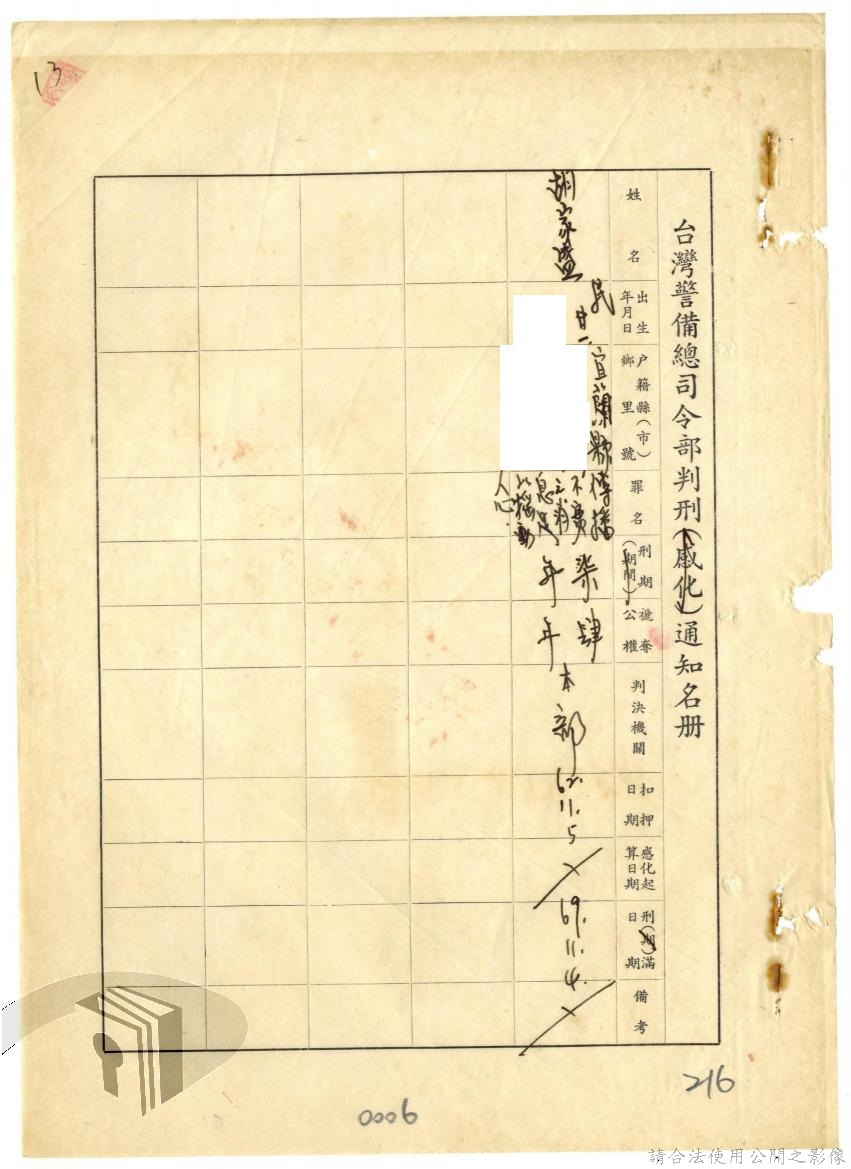 13
台灣警備總司令部判刑(感化)通知名册
姓名
出生年月日
戶籍縣(市)鄉里號
罪名
刑期(期間)
褫奪公權
判決機關
扣押日期
感化起算日期
刑(期)滿日期
備考
胡家盛
民廿一
宜蘭縣
傳播不實之消息足以搖動人心
柒年
肆年
本部
62.11.5
69.11.4.
216
0006
請合法使用公開之影像